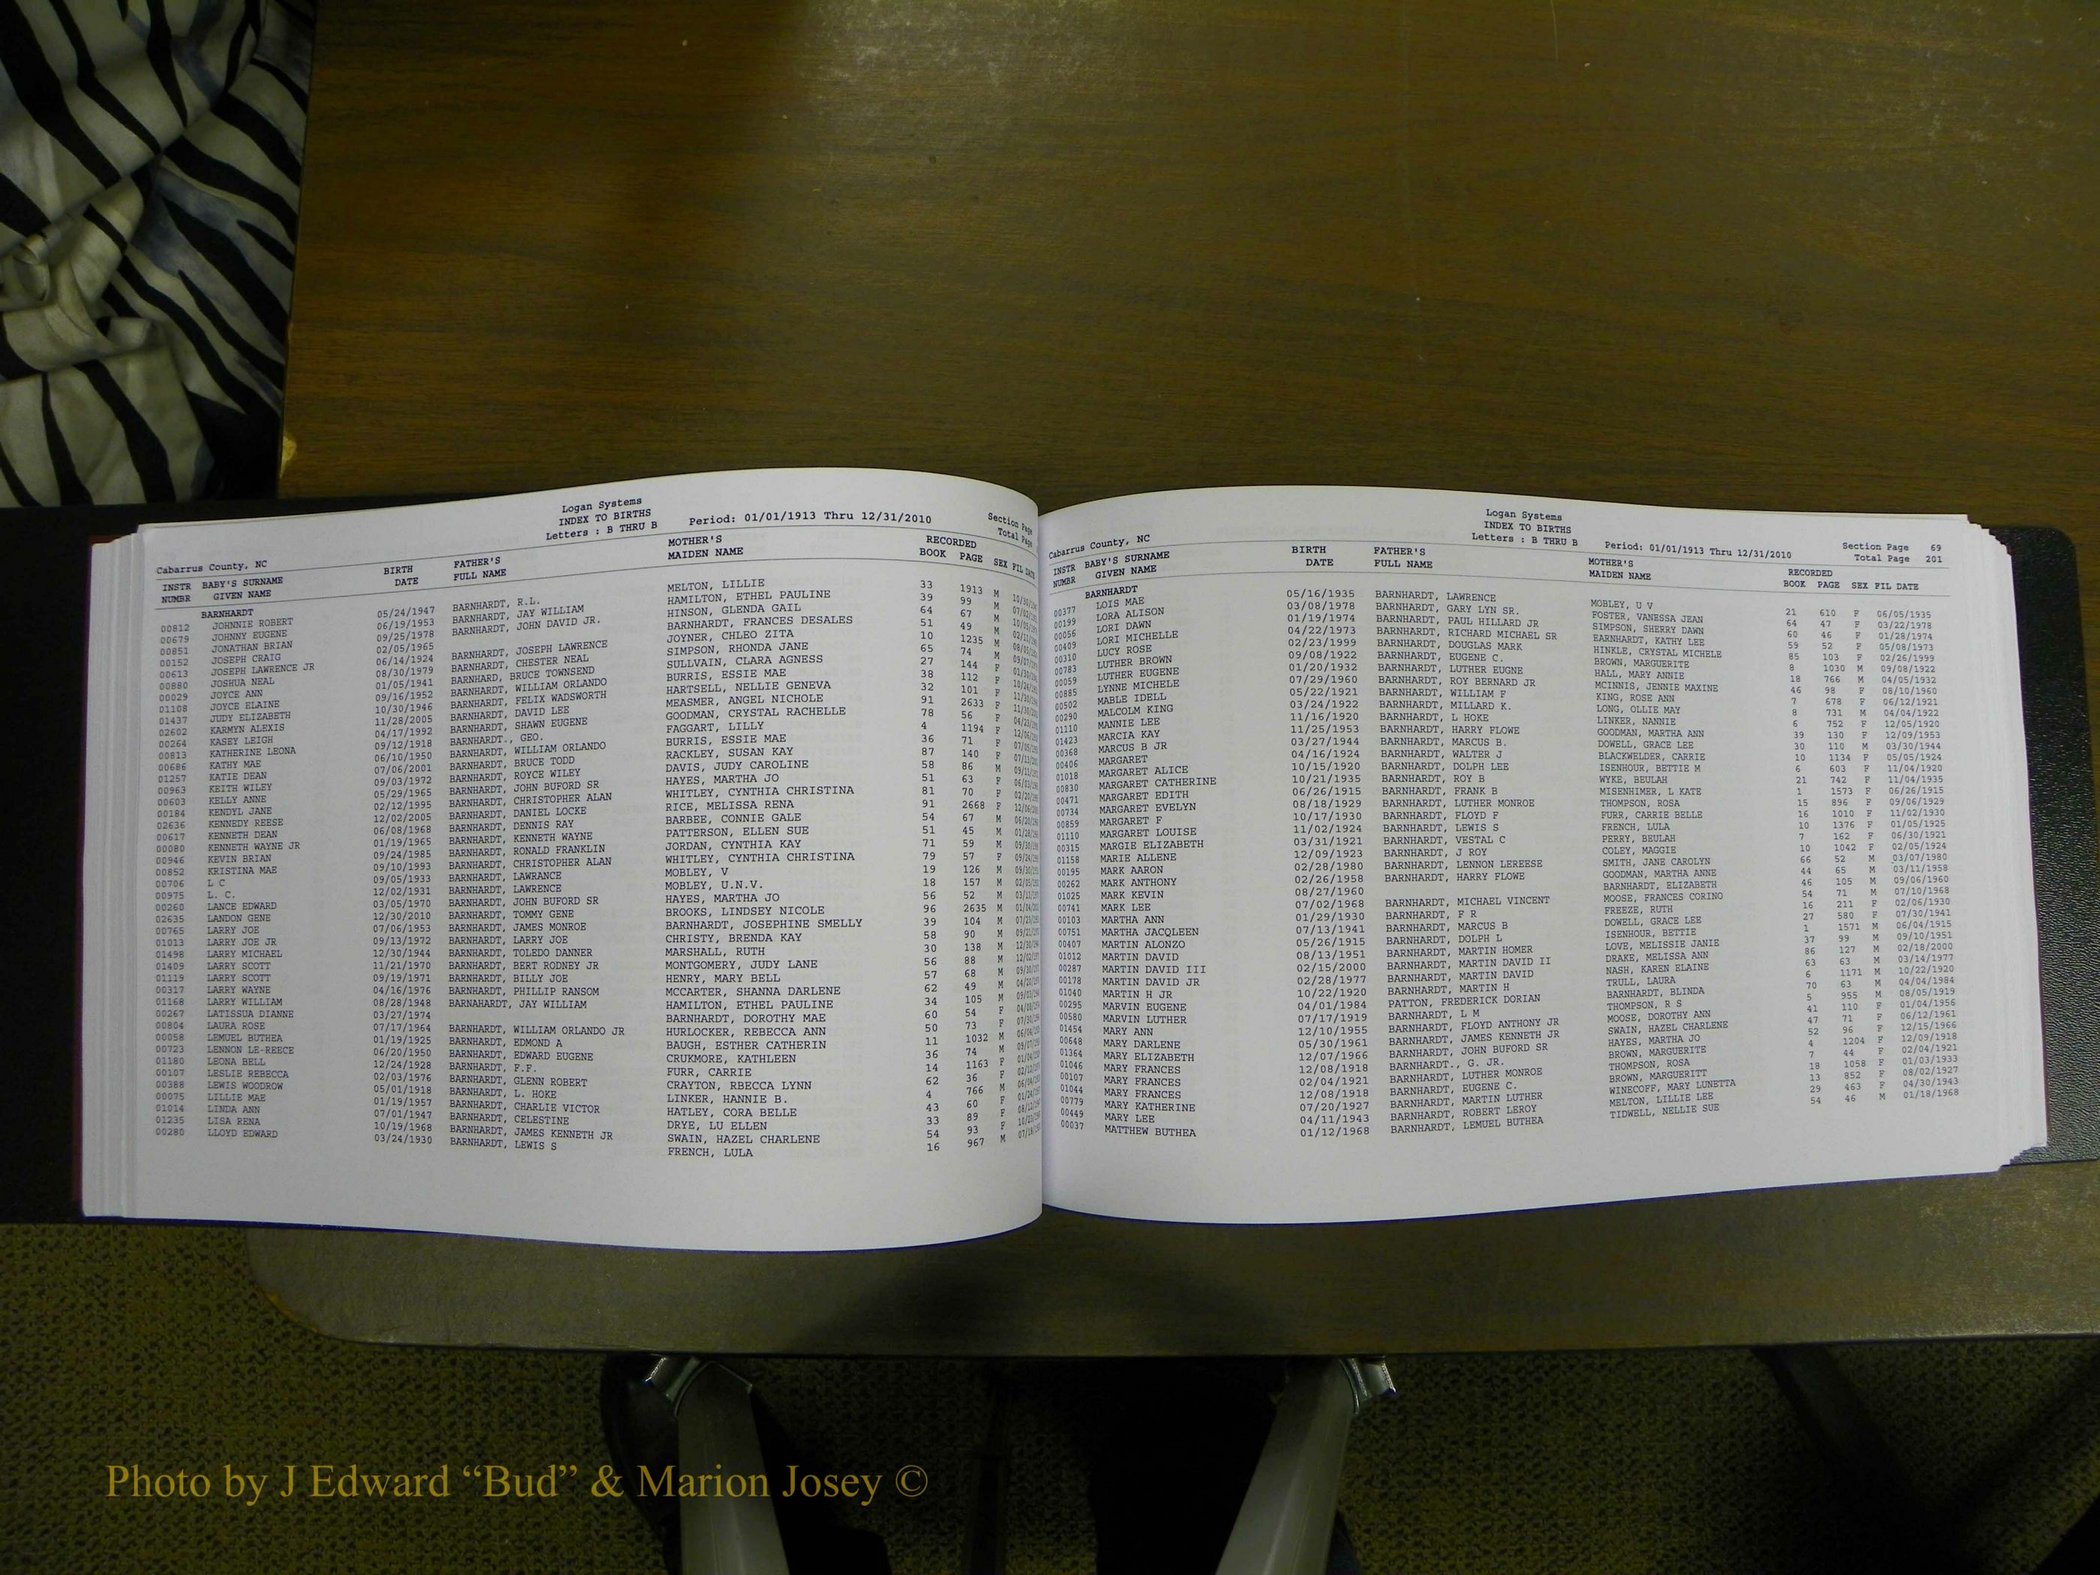 Logan Systems
INDEX TO BIRTHS
Letters : B THRU B Period: 01/01/1913 Thru 12/31/2010
Section Page
Total Page
Cabarrus County, NC
INSTR BABY'S SURNAME BIRTH FATHER'S MOTHER'S RECORDED
NUMBR GIVEN NAME DATE FULL NAME MAIDEN NAME BOOK PAGE SEX FIL DATE
BARNHARDT
00812 JOHNNIE ROBERT 05/24/1947 BARNHARDT, R.L. MELTON, LILLIE 33 1913 M
00679 JOHNNY EUGENE 06/19/1953 BARNHARDT, JAY WILLIAM HAMILTON, ETHEL PAULINE 39 99 M
00851 JONATHAN BRIAN 09/25/1978 BARNHARDT, JOHN DAVID JR. HINSON, GLENDA GAIL 64 67 M
00152 JOSEPH CRAIG 02/05/1965 BARNHARDT, FRANCES DESALES 51 49 M
00613 JOSEPH LAWRENCE JR 06/14/1924 BARNHARDT, JOSEPH LAWRENCE JOYNER, CHLEO ZITA 10 1235 M
00880 JOSHUA NEAL 08/30/1979 BARNHARDT, CHESTER NEAL SIMPSON, RHONDA JANE 65 74 M
00029 JOYCE ANN 01/05/1941 BARNHARD, BRUCE TOWNSEND SULLVAIN, CLARA AGNESS 27 144 F
01108 JOYCE ELAINE 09/16/1952 BARNHARDT, WILLIAM ORLANDO BURRIS, ESSIE MAE 38 112 F
01437 JUDY ELIZABETH 10/30/1946 BARNHARDT, FELIX WADSWORTH HARTSELL, NELLIE GENEVA 32 101 F
02602 KARMYN ALEXIS 11/28/2005 BARNHARDT, DAVID LEE MEASMER, ANGEL NICHOLE 91 2633 F
00264 KASEY LEIGH 04/17/1992 BARNHARDT, SHAWN EUGENE GOODMAN, CRYSTAL RACHELLE 78 56 F
00813 KATHERINE LEONA 09/12/1918 BARNHARDT., GEO. FAGGART, LILLY 4 1194 F
00686 KATHY MAE 06/10/1950 BARNHARDT, WILLIAM ORLANDO BURRIS, ESSIE MAE 36 71 F
01257 KATIE DEAN 07/06/2001 BARNHARDT, BRUCE TODD RACKLEY, SUSAN KAY 87 140 F
00963 KEITH WILEY 09/03/1972 BARNHARDT, ROYCE WILEY DAVIS, JUDY CAROLINE 58 86 M
00603 KELLY ANNE 05/29/1965 BARNHARDT, JOHN BUFORD SR HAYES, MARTHA JO 51 63 F
00184 KENDYL JANE 02/12/1995 BARNHARDT, CHRISTOPHER ALAN WHITLEY, CYNTHIA CHRISTINA 81 70 F
02636 KENNEDY REESE 12/02/2005 BARNHARDT, DANIEL LOCKE RICE, MELISSA RENA 91 2668 F
00617 KENNETH DEAN 06/08/1968 BARNHARDT, DENNIS RAY BARBEE, CONNIE GALE 54 67 M
00080 KENNETH WAYNE JR 01/19/1965 BARNHARDT, KENNETH WAYNE PATTERSON, ELLEN SUE 51 45 M
00946 KEVIN BRIAN 09/24/1985 BARNHARDT, RONALD FRANKLIN JORDAN, CYNTHIA KAY 71 59 M
00852 KRISTINA MAE 09/10/1993 BARNHARDT, CHRISTOPHER ALAN WHITLEY, CYNTHIA CHRISTINA 79 57 F
00706 L C 09/05/1933 BARNHARDT, LAWRANCE MOBLEY, V 19 126 M
00975 L. C. 12/02/1931 BARNHARDT, LAWRENCE MOBLEY, U.N.V. 18 157 M
00260 LANCE EDWARD 03/05/1970 BARNHARDT, JOHN BUFORD SR HAYES, MARTHA JO 56 52 M
02635 LANDON GENE 12/30/2010 BARNHARDT, TOMMY GENE BROOKS, LINDSEY NICOLE 96 2635 M
00765 LARRY JOE 07/06/1953 BARNHARDT, JAMES MONROE BARNHARDT, JOSEPHINE SMELLY 39 104 M
01013 LARRY JOE JR 09/13/1972 BARNHARDT, LARRY JOE CHRISTY, BRENDA KAY 58 90 M
01498 LARRY MICHAEL 12/30/1944 BARNHARDT, TOLEDO DANNER MARSHALL, RUTH 30 138 M
01409 LARRY SCOTT 11/21/1970 BARNHARDT, BERT RODNEY JR MONTGOMERY, JUDY LANE 56 88 M
01119 LARRY SCOTT 09/19/1971 BARNHARDT, BILLY JOE HENRY, MARY BELL 57 68 M
00317 LARRY WAYNE 04/16/1976 BARNHARDT, PHILLIP RANSOM MCCARTER, SHANNA DARLENE 62 49 M
01168 LARRY WILLIAM 08/28/1948 BARNAHARDT, JAY WILLIAM HAMILTON, ETHEL PAULINE 34 105 M
00267 LATISSUA DIANNE 03/27/1974 BARNHARDT, DOROTHY MAE 60 54 F
00804 LAURA ROSE 07/17/1964 BARNHARDT, WILLIAM ORLANDO JR HURLOCKER, REBECCA ANN 50 73 F
00058 LEMUEL BUTHEA 01/19/1925 BARNHARDT, EDMOND A BAUGH, ESTHER CATHERIN 11 1032 M
00723 LENNON LE-REECE 06/20/1950 BARNHARDT, EDWARD EUGENE CRUKMORE, KATHLEEN 36 74 M
01180 LEONA BELL 12/24/1928 BARNHARDT, F.F. FURR, CARRIE 14 1163 F
00107 LESLIE REBECCA 02/03/1976 BARNHARDT, GLENN ROBERT CRAYTON, RBECCA LYNN 62 36 F
00388 LEWIS WOODROW 05/01/1918 BARNHARDT, L. HOKE LINKER, HANNIE B. 4 766 M
00075 LILLIE MAE 01/19/1957 BARNHARDT, CHARLIE VICTOR HATLEY, CORA BELLE 43 60 F
01014 LINDA ANN 07/01/1947 BARNHARDT, CELESTINE DRYE, LU ELLEN 33 89 F
01235 LISA RENA 10/19/1968 BARNHARDT, JAMES KENNETH JR SWAIN, HAZEL CHARLENE 54 93 F
00280 LLOYD EDWARD 03/24/1930 BARNHARDT, LEWIS S FRENCH, LULA 16 967 M
Logan Systems
INDEX TO BIRTHS
Letters : B THRU B Period: 01/01/1913 Thru 12/31/2010
Section Page 69
Total Page 201
Cabarrus County, NC
INSTR BABY'S SURNAME BIRTH FATHER'S MOTHER'S RECORDED
NUMBR GIVEN NAME DATE FULL NAME MAIDEN NAME BOOK PAGE SEX FIL DATE
BARNHARDT
00377 LOIS MAE 05/16/1935 BARNHARDT, LAWRENCE MOBLEY, U V 21 610 F 06/05/1935
00199 LORA ALISON 03/08/1978 BARNHARDT, GARY LYN SR. FOSTER, VANESSA JEAN 64 47 F 03/22/1978
00056 LORI DAWN 01/19/1974 BARNHARDT, PAUL HILLARD JR SIMPSON, SHERRY DAWN 60 46 F 01/28/1974
00409 LORI MICHELLE 04/22/1973 BARNHARDT, RICHARD MICHAEL SR EARNHARDT, KATHY LEE 59 52 F 05/08/1973
00310 LUCY ROSE 02/23/1999 BARNHARDT, DOUGLAS MARK HINKLE, CRYSTAL MICHELE 85 103 F 02/26/1999
00783 LUTHER BROWN 09/08/1922 BARNHARDT, EUGENE C. BROWN, MARGUERITE 8 1030 M 09/08/1922
00059 LUTHER EUGENE 01/20/1932 BARNHARDT, LUTHER EUGNE HALL, MARY ANNIE 18 766 M 04/05/1932
00885 LYNNE MICHELE 07/29/1960 BARNHARDT, ROY BERNARD JR MCINNIS, JENNIE MAXINE 46 98 F 08/10/1960
00502 MABLE IDELL 05/22/1921 BARNHARDT, WILLIAM F KING, ROSE ANN 7 678 F 06/12/1921
00290 MALCOLM KING 03/24/1922 BARNHARDT, MILLARD K. LONG, OLLIE MAY 8 731 M 04/04/1922
01110 MANNIE LEE 11/16/1920 BARNHARDT, L HOKE LINKER, NANNIE 6 752 F 12/05/1920
01423 MARCIA KAY 11/25/1953 BARNHARDT, HARRY FLOWE GOODMAN, MARTHA ANN 39 130 F 12/09/1953
00368 MARCUS B JR 03/27/1944 BARNHARDT, MARCUS B. DOWELL, GRACE LEE 30 110 M 03/30/1944
00406 MARGARET 04/16/1924 BARNHARDT, WALTER J BLACKWELDER, CARRIE 10 1134 F 05/05/1924
01018 MARGARET ALICE 10/15/1920 BARNHARDT, DOLPH LEE ISENHOUR, BETTIE M 6 603 F 11/04/1920
00830 MARGARET CATHERINE 10/21/1935 BARNHARDT, ROY B WYKE, BEULAH 21 742 F 11/04/1935
00471 MARGARET EDITH 06/26/1915 BARNHARDT, FRANK B MISENHIMER, L KATE 1 1573 F 06/26/1915
00734 MARGARET EVELYN 08/18/1929 BARNHARDT, LUTHER MONROE THOMPSON, ROSA 15 896 F 09/06/1929
00859 MARGARET F 10/17/1930 BARNHARDT, FLOYD F FURR, CARRIE BELLE 16 1010 F 11/02/1930
01110 MARGARET LOUISE 11/02/1924 BARNHARDT, LEWIS S FRENCH, LULA 10 1376 F 01/05/1925
00315 MARGIE ELIZABETH 03/31/1921 BARNHARDT, VESTAL C PERRY, BEULAH 7 162 F 06/30/1921
01158 MARIE ALLENE 12/09/1923 BARNHARDT, J ROY COLEY, MAGGIE 10 1042 F 02/05/1924
00195 MARK AARON 02/28/1980 BARNHARDT, LENNON LEREESE SMITH, JANE CAROLYN 66 52 M 03/07/1980
00262 MARK ANTHONY 02/26/1958 BARNHARDT, HARRY FLOWE GOODMAN, MARTHA ANNE 44 65 M 03/11/1958
01025 MARK KEVIN 08/27/1960 BARNHARDT, ELIZABETH 46 105 M 09/06/1960
00741 MARK LEE 07/02/1968 BARNHARDT, MICHAEL VINCENT MOOSE, FRANCES CORINO 54 71 M 07/10/1968
00103 MARTHA ANN 01/29/1930 BARNHARDT, F R FREEZE, RUTH 16 211 F 02/06/1930
00751 MARTHA JACQLEEN 07/13/1941 BARNHARDT, MARCUS B DOWELL, GRACE LEE 27 580 F 07/30/1941
00407 MARTIN ALONZO 05/26/1915 BARNHARDT, DOLPH L ISENHOUR, BETTIE 1 1571 M 06/04/1915
01012 MARTIN DAVID 08/13/1951 BARNHARDT, MARTIN HOMER LOVE, MELISSIE JANIE 37 99 M 09/10/1951
00287 MARTIN DAVID III 02/15/2000 BARNHARDT, MARTIN DAVID II DRAKE, MELISSA ANN 86 127 M 02/18/2000
00178 MARTIN DAVID JR 02/28/1977 BARNHARDT, MARTIN DAVID NASH, KAREN ELAINE 63 63 M 03/14/1977
01040 MARTIN H JR 10/22/1920 BARNHARDT, MARTIN H TRULL, LAURA 6 1171 M 10/22/1920
00295 MARVIN EUGENE 04/01/1984 PATTON, FREDERICK DORIAN BARNHARDT, BLINDA 70 63 M 04/04/1984
00580 MARVIN LUTHER 07/17/1919 BARNHARDT, L M THOMPSON, R S 5 955 M 08/05/1919
01454 MARY ANN 12/10/1955 BARNHARDT, FLOYD ANTHONY JR MOOSE, DOROTHY ANN 41 110 F 01/04/1956
00648 MARY DARLENE 05/30/1961 BARNHARDT, JAMES KENNETH JR SWAIN, HAZEL CHARLENE 47 71 F 06/12/1961
01364 MARY ELIZABETH 12/07/1966 BARNHARDT, JOHN BUFORD SR HAYES, MARTHA JO 52 96 F 12/15/1966
01046 MARY FRANCES 12/08/1918 BARNHARDT., G. JR. BROWN, MARGUERITE 4 1204 F 12/09/1918
00107 MARY FRANCES 02/04/1921 BARNHARDT, LUTHER MONROE THOMPSON, ROSA 7 44 F 02/04/1921
01044 MARY FRANCES 12/08/1918 BARNHARDT, EUGENE C. BROWN, MARGUERITT 18 1058 F 01/03/1933
00779 MARY KATHERINE 07/20/1927 BARNHARDT, MARTIN LUTHER WINECOFF, MARY LUNETTA 13 852 F 08/02/1927
00449 MARY LEE 04/11/1943 BARNHARDT, ROBERT LEROY MELTON, LILLIE LEE 29 463 F 04/30/1943
00037 MATTHEW BUTHEA 01/12/1968 BARNHARDT, LEMUEL BUTHEA TIDWELL, NELLIE SUE 54 46 M 01/18/1968
Photo by J Edward “Bud” & Marion Josey ©